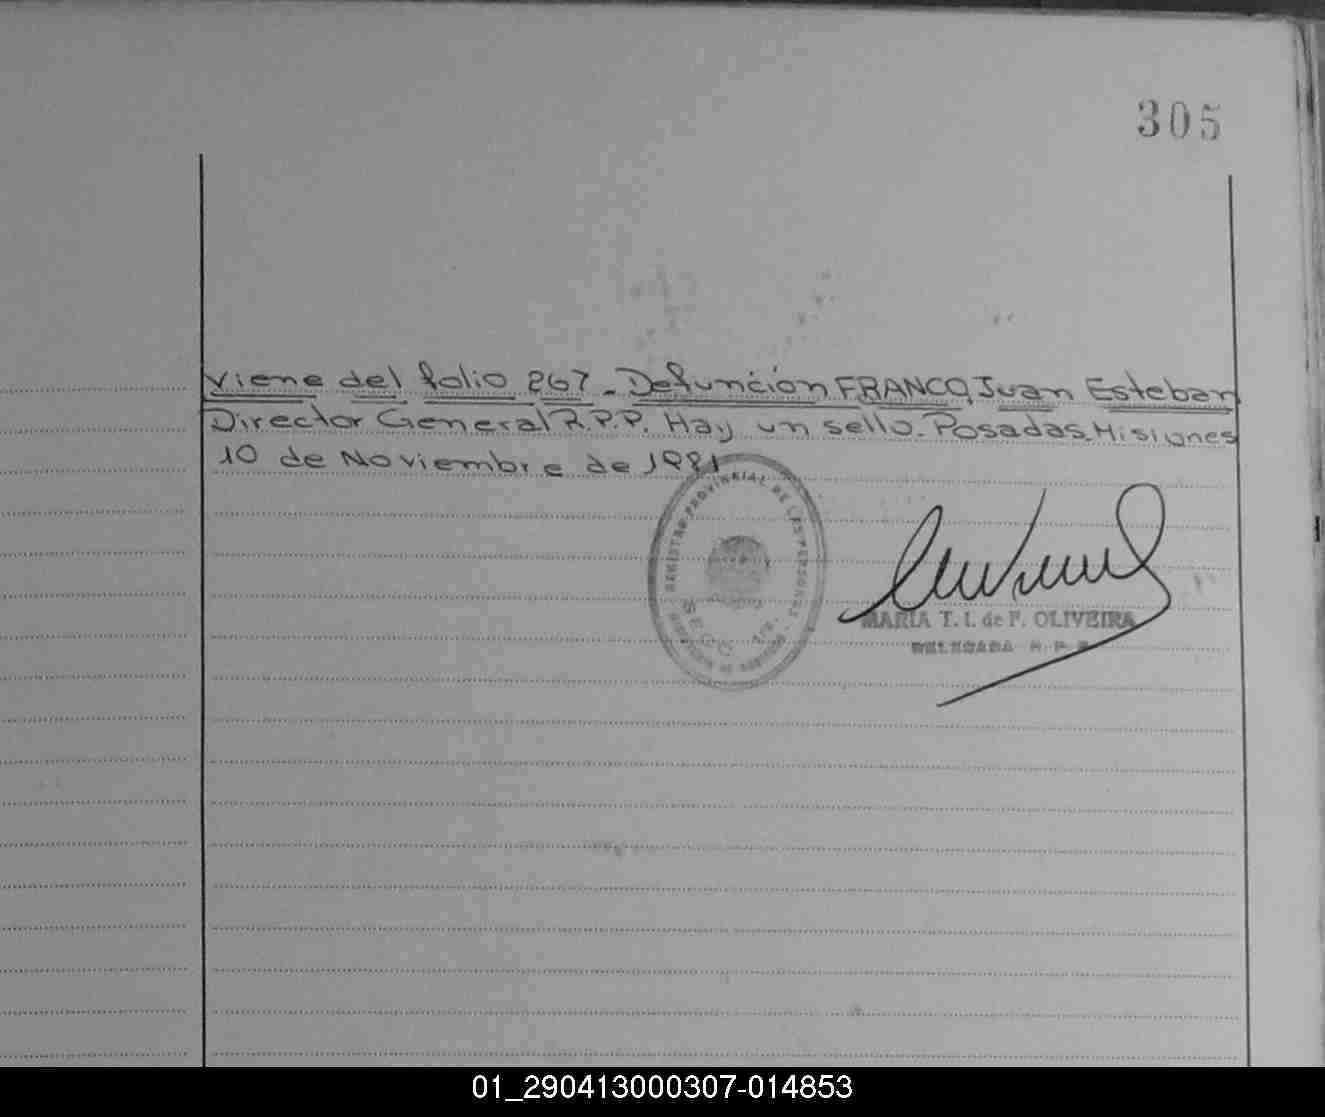 305
Viene del folio 267_ Defunción FRANCO, Juan Esteban
Director General R.P.P. Hay un sello. Posadas. Misiones
10 de Noviembre de 1981
PROVINCIAL DE LAS PERSONAS
MARIA T. I. de F. OLIVEIRA
DELEGADA R P P
01_290413000307-014853